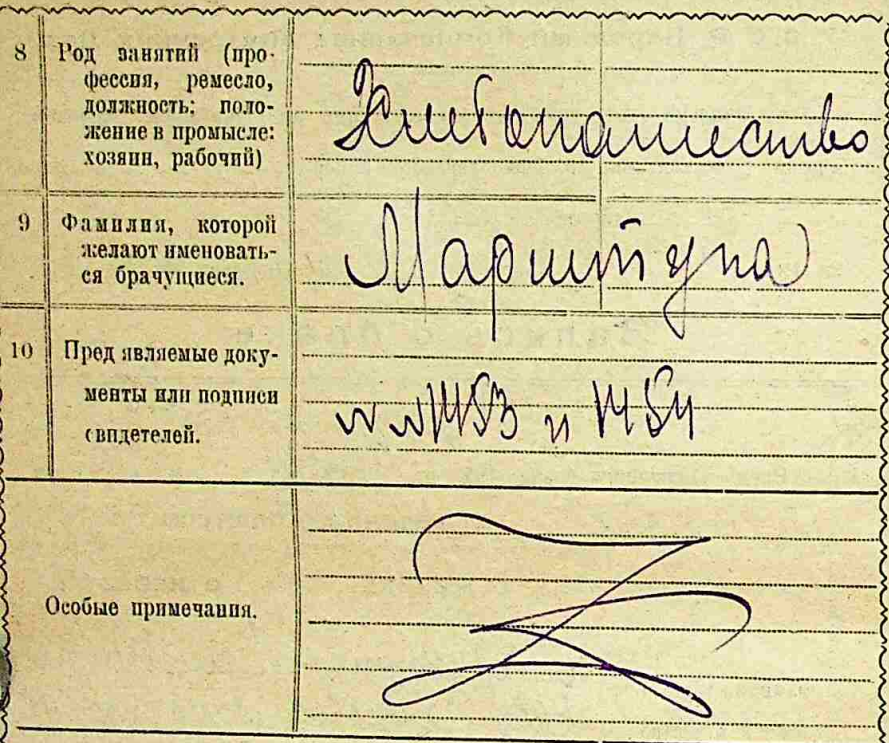 8 Род занятий (про-
фессия, ремесло,
должность: поло-
жение в промысле:
хозяин, рабочий)
Хлебопашество
9 Фамилия, которой
желают именовать-
ся брачущиеся.
10 Пред'являемые доку-
менты или подписи
свидетелей.
и
Особые примечания.